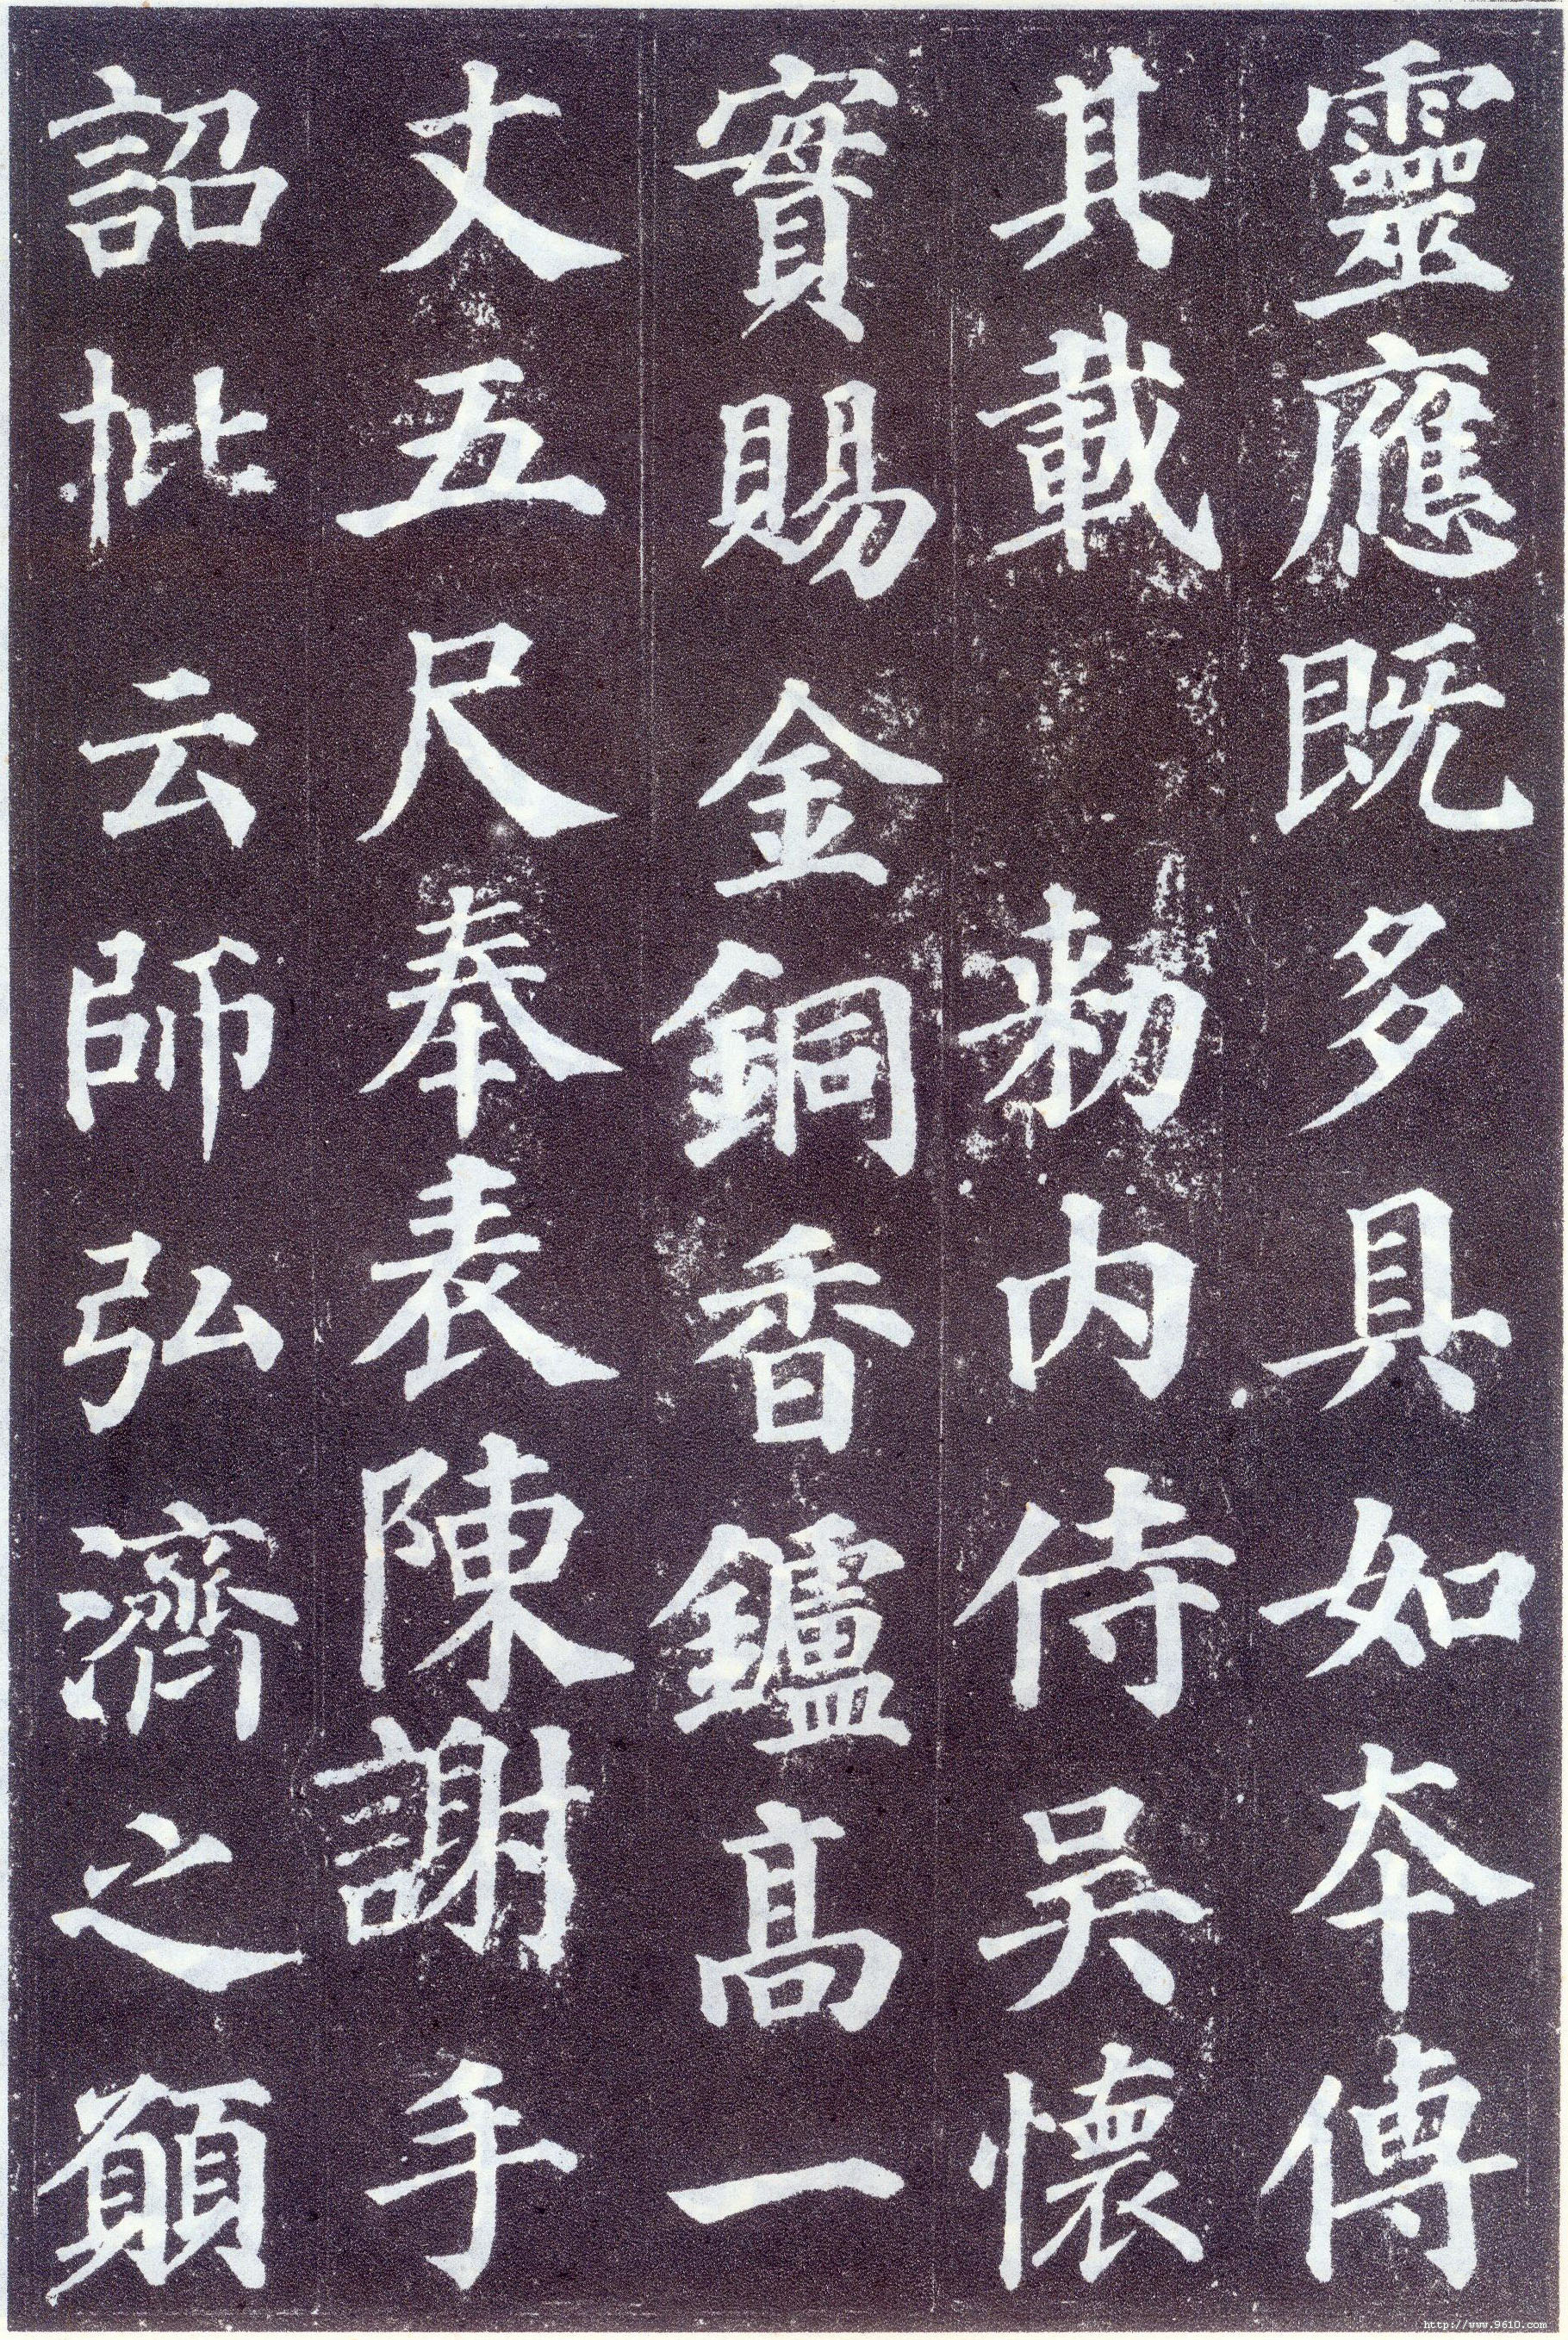 靈應既多具如本傳
其載勑内侍吳懷
實賜金銅香鑪高一
丈五尺奉表陳謝手
詔批云師弘濟之願
http://www.9610.com